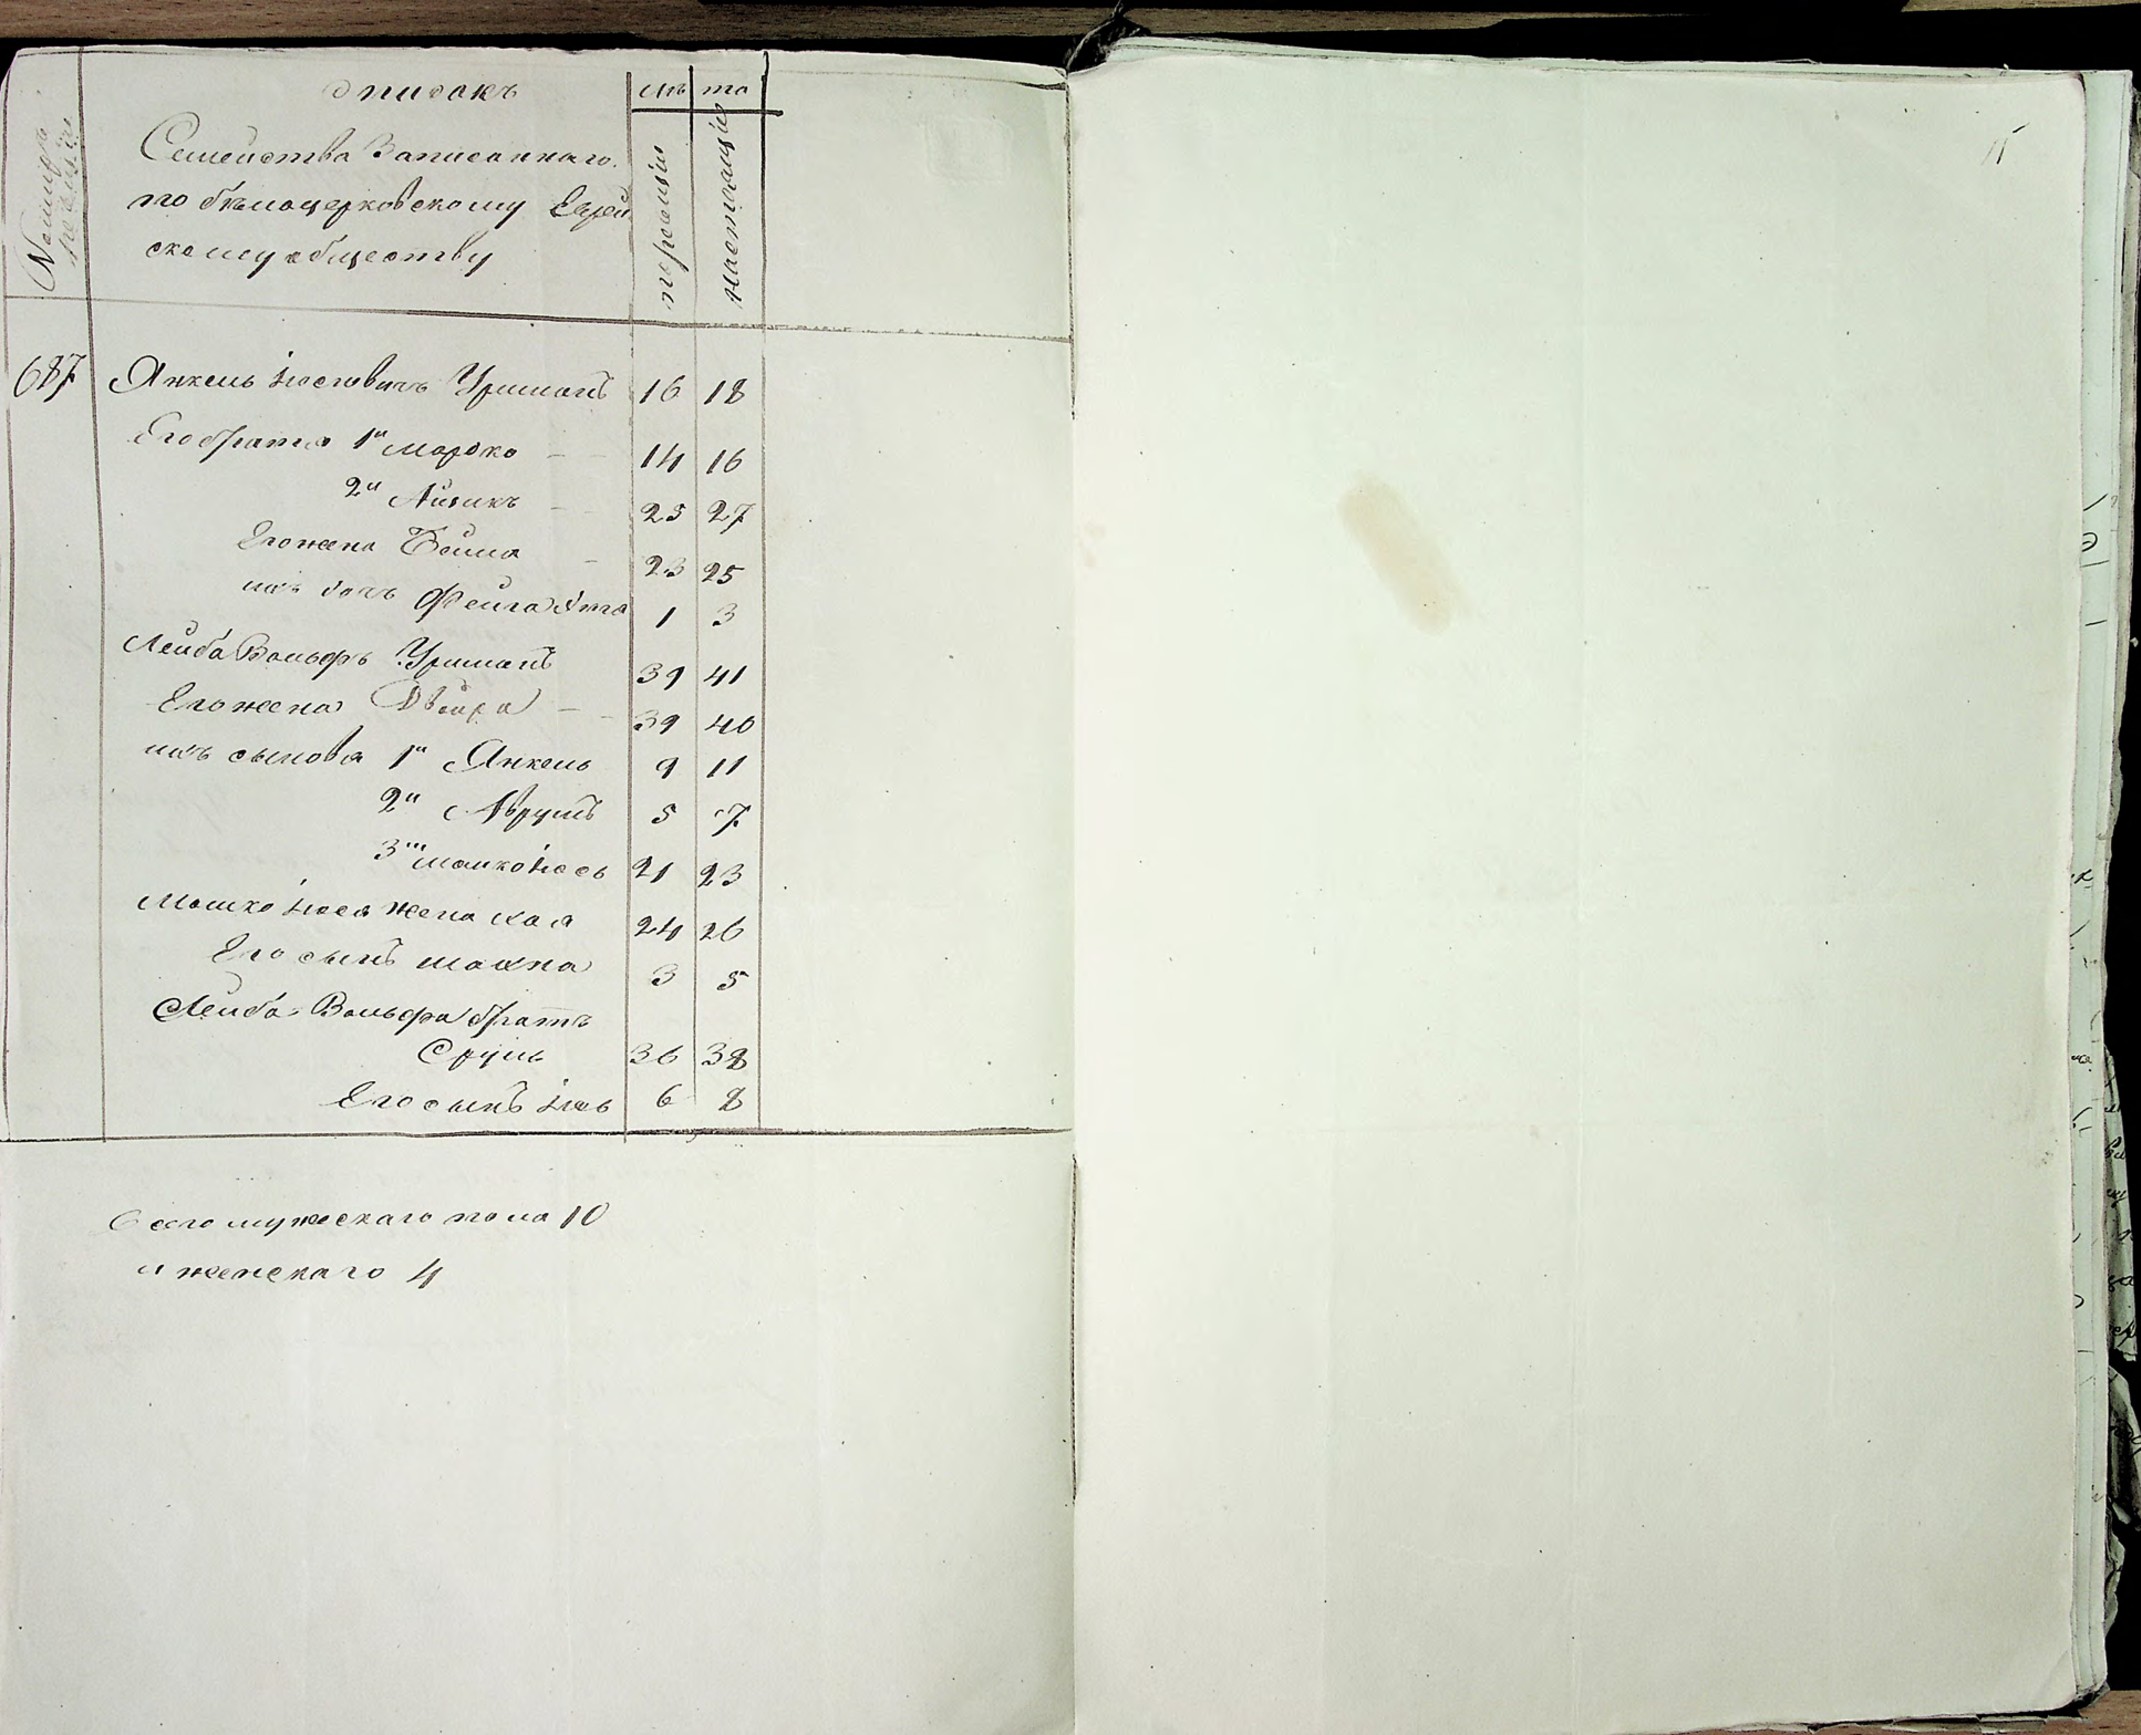 Номеръ ревизіи
Список​ъ
лѣ та
Семейства Записаннаго
по бѣлоцерковскому Еврей
скому обществу
по ревизіи
настоящіе
687 Янкель Іосіовичъ Уришанъ 16 18
Его братья 1й Мордко 14 16
2й Айзикъ 25 27
Его жена Бейла 23 25
ихъ дочь Фейга 1 3
Лейба Вольфъ Уришанъ 39 41
Его жена Двойра 39 40
ихъ сыновья 1й Янкель 9 11
2й Аврумъ 5 7
3й Мошко Іось 21 23
Мошко Іося жена Хая 24 26
Его сынъ шахна 3 5
Лейба Вольфа братъ
Сруль 36 38
Его сынъ Іось 6 8
Всего мужескаго пола 10
и женскаго 4